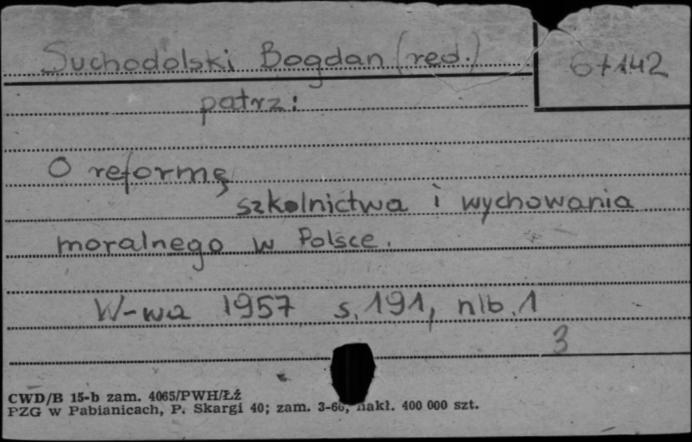 Suchodolski Bogdan (red.) 67142
patrz:
O reformę
szkolnictwa i wychowania
moralnego w Polsce.
W-wa 1957 s. 191, nlb. 1
3
CWD/B 15-b zam. 4065/PWH/Łź
PZG w Pabianicach, P. Skargi 40; zam. 3-66, nakł. 400 000 szt.